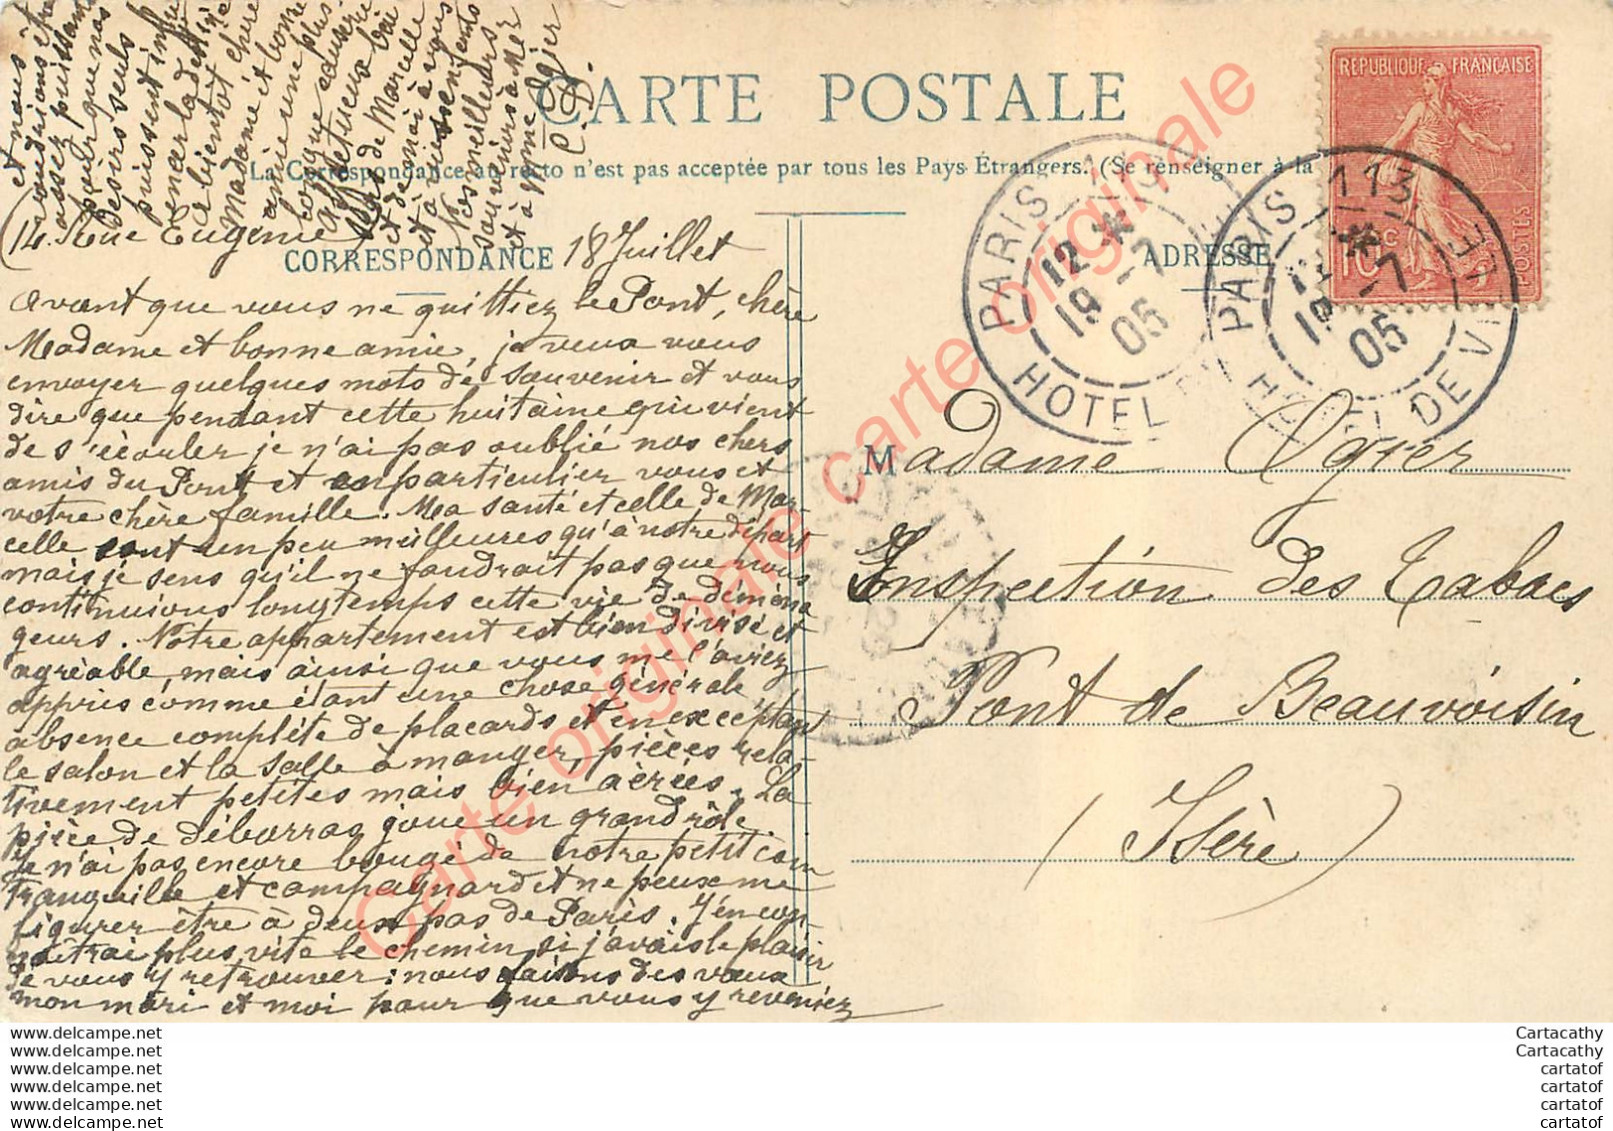 CARTE POSTALE
La Correspondance au recto n'est pas acceptée par tous les Pays Étrangers. (Se renseigner à la
CORRESPONDANCE
ADRESSE
REPUBLIQUE FRANÇAISE
10 c
POSTES
PARIS 113
12
19 -7
05
HOTEL
PARIS 113
19 -7
05
HOTEL DE VILLE
(14. Rue Eugénie
18 Juillet
Avant que vous ne quittiez le Pont, chère
Madame et bonne amie, je veux vous
envoyer quelques mots de souvenir et vous
dire que pendant cette huitaine qui vient
de s'écouler je n'ai pas oublié nos chers
amis du Pont et en particulier vous et
votre chère famille. Ma santé et celle de Mar-
celle sont un peu meilleures qu'à notre départ
mais je sens qu'il ne faudrait pas que nous
continuions longtemps cette vie de déména
geurs. Notre appartement est bien divisé et
agréable, mais ainsi que vous me l'aviez
appris comme étant une chose générale
absence complète de placards et en exceptant
le salon et la salle à manger, pièces rela-
tivement petites mais bien aèrées. La
pièce de débarras joue un grand rôle.
Je n'ai pas encore bougé de notre petit coin
tranquille et campagnard et ne peux me
figurer être à deux pas de Paris. J'en con-
naîtrai plus vite le chemin si j'avais le plaisir
de vous y retrouver: nous faisons des vœux
mon mari et moi pour que vous y reveniez
et nous
voudrions être
assez puissants
pour que nos
désirs seuls
puissent
à bientôt chère
Madame et bonne
amie une plus
longue causerie
Affectueux
de Marcelle
et de moi à vous
et à
mes meilleurs
souvenirs à Mr
et à Mme Ogier
C. D.
Madame Ogier
Inspection des Tabacs
Pont de Beauvoisin
(Isère)
Carte originale carte originale carte originale
www.delcampe.net
www.delcampe.net
www.delcampe.net
www.delcampe.net
www.delcampe.net
www.delcampe.net
Cartacathy
Cartacathy
cartatof
cartatof
cartatof
cartatof